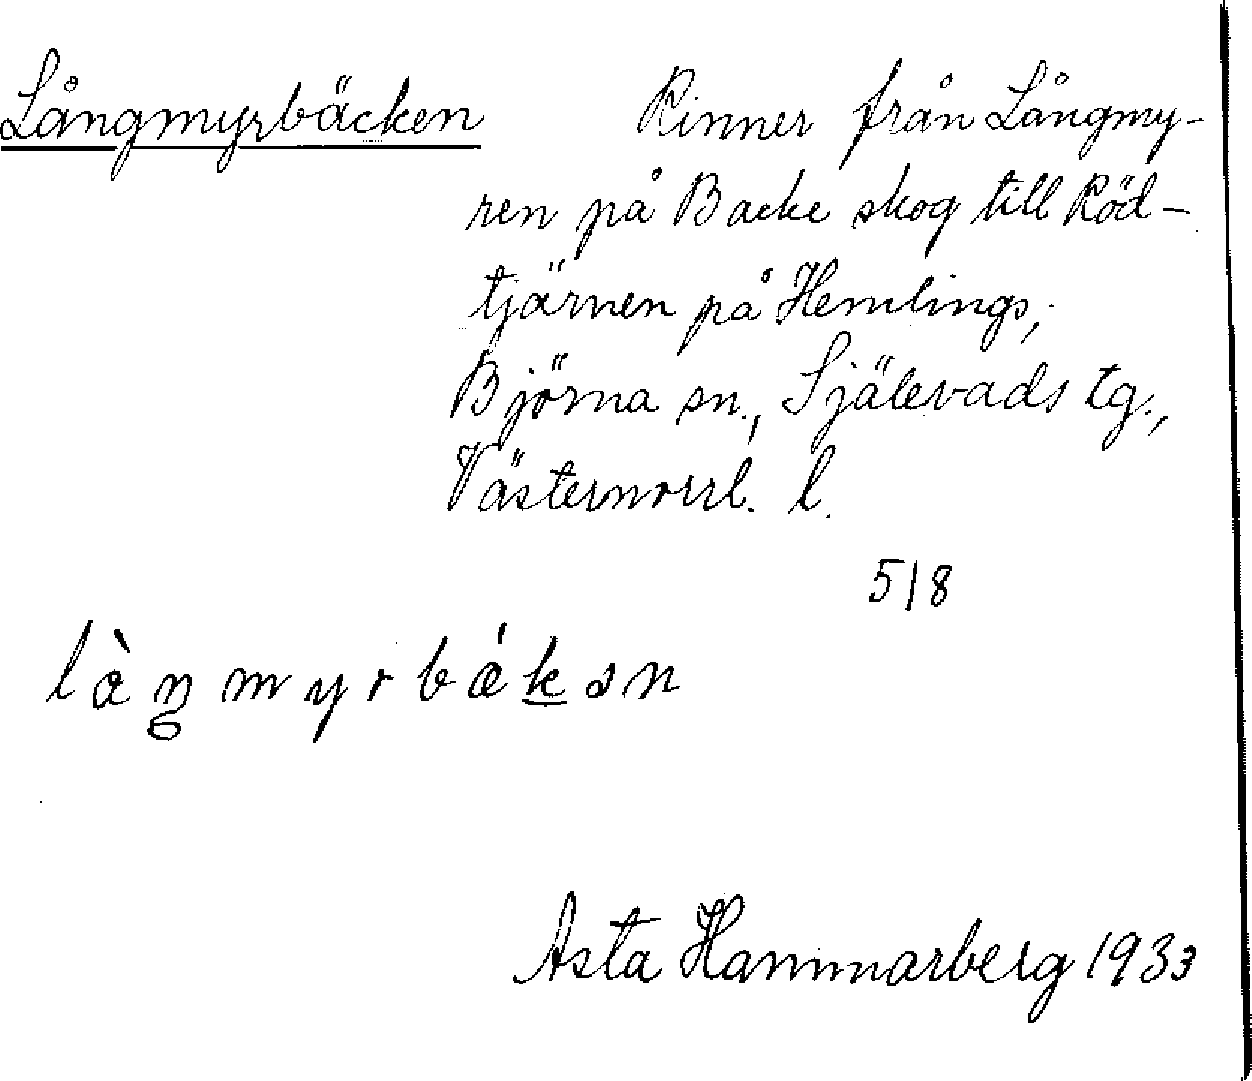 Långmyrbäcken Rinner från Långmy-
ren på Backe skog till Röd-
tjärnen på Hemlings,
Björna sn., Själevads tg.,
Västernorrl. l.
5/8
là̀ŋmyrbák̲ən
Asta Hammarberg 1933